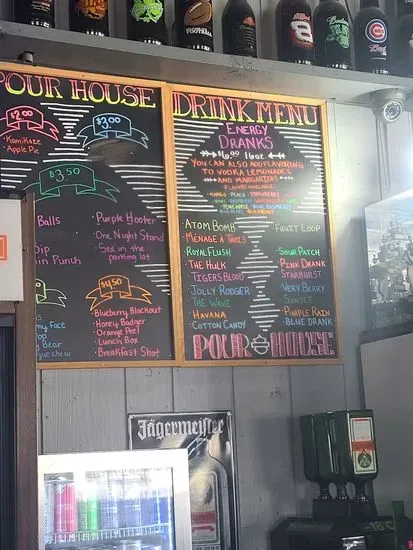 POUR HOUSE
$2.00
• Kamikaze
• Apple Pie
$3.00
$3.50
Balls
Dip
in Punch
• Purple Hooter
• One Night Stand
• Sex in the
parking lot
$4.50
my Face
Bear
gue chew
• Blueberry Blackout
• Honey Badger
• Orange Peel
• Lunch Box
• Breakfast Shot
DRINK MENU
ENERGY
DRANKS
16oz
YOU CAN ALSO ADD FLAVORING
TO VODKA LEMONADES
AND MARGARITAS
FLAVORS AVAILABLE:
MANGO • PEACH • STRAWBERRY
PINEAPPLE • BLUE RASPBERRY
BLACKBERRY
• ATOM BOMB
• MENAGE A TROIS
• ROYAL FLUSH
• THE HULK
• TIGERS BLOOD
• JOLLY RODGER
• THE WAVE
• HAVANA
• COTTON CANDY
• FRUIT LOOP
• SOUR PATCH
• PINK DRANK
• STARBURST
• VERY BERRY
• SUNSET
• PURPLE RAIN
• BLUE DRANK
POUR HOUSE
Jägermeister
-18°C
FOOTBALL
8